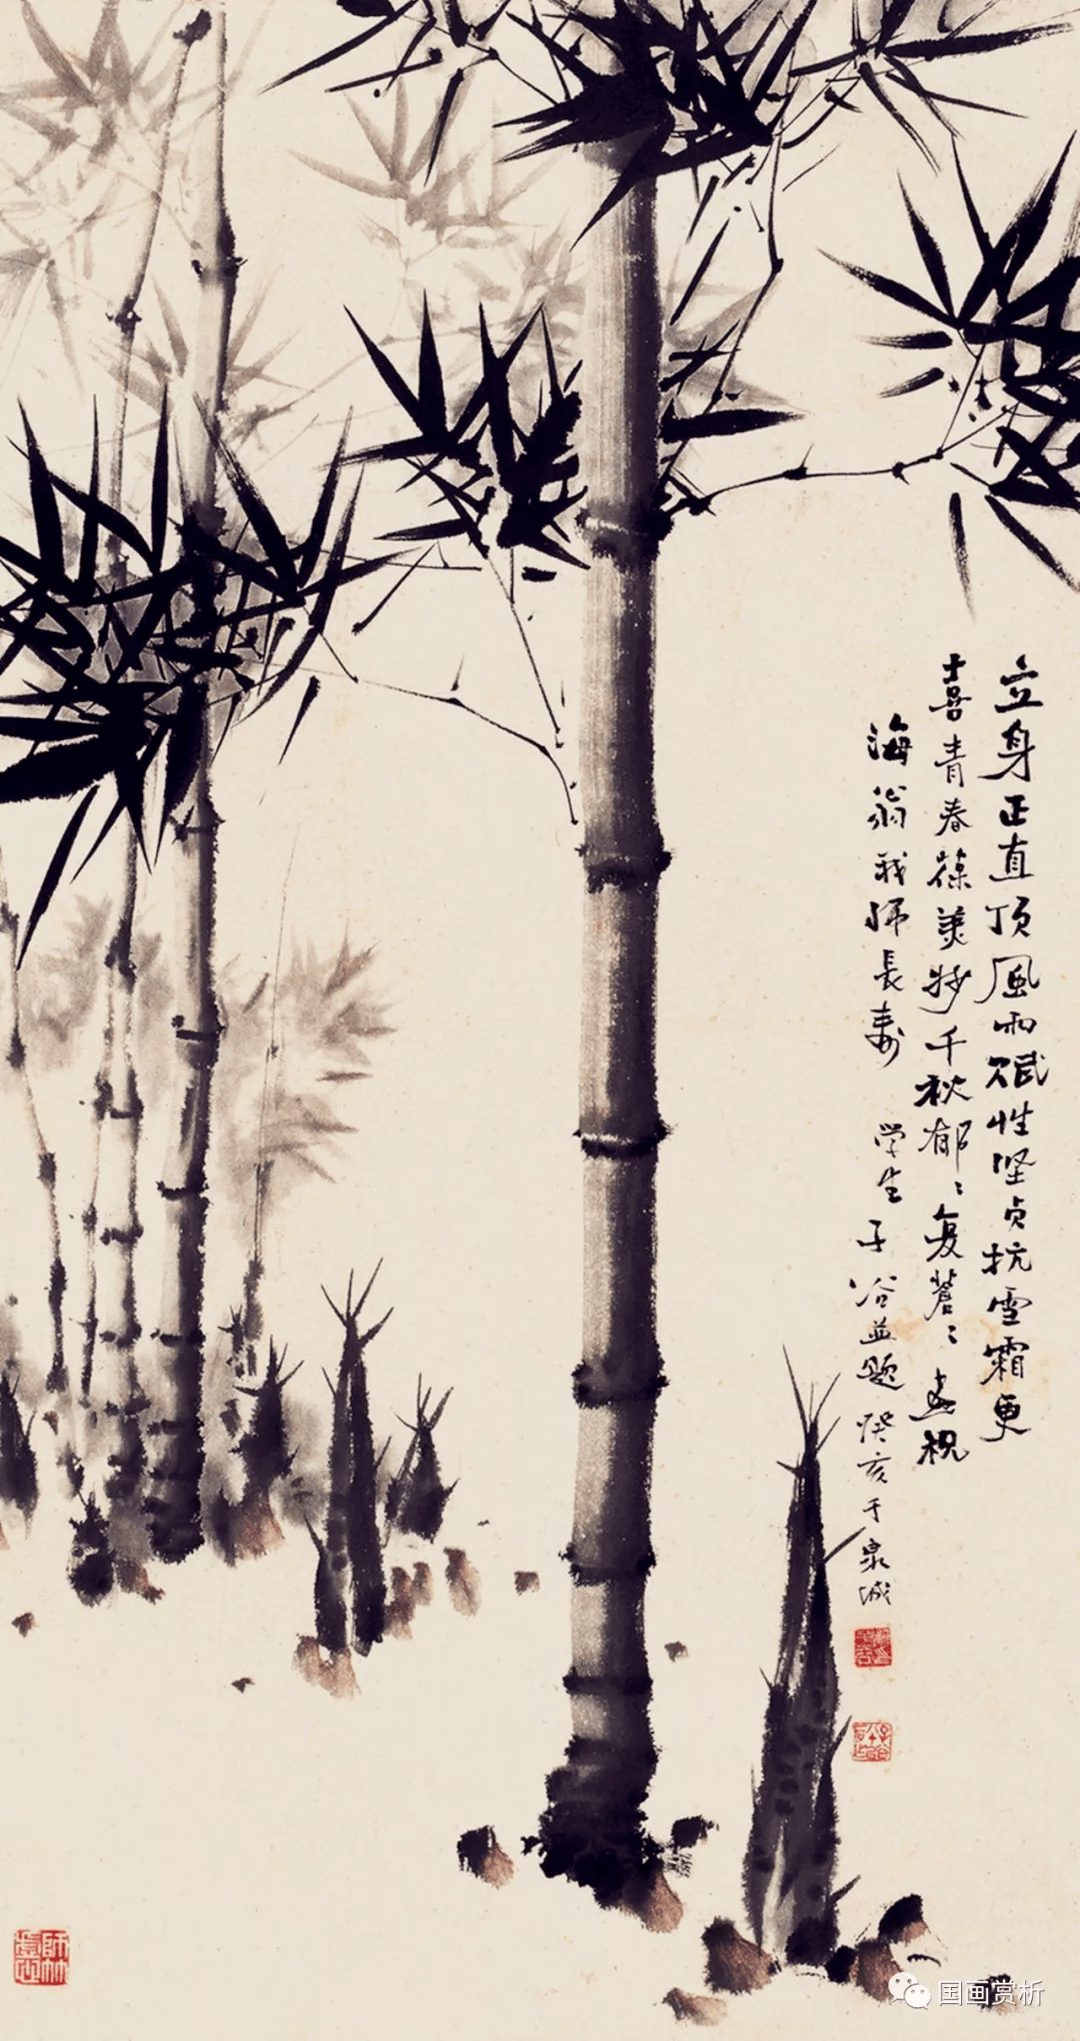 立身正直顶風雨賦性坚贞抗雪霜更
喜青春葆美妙千秋郁〻复苍〻画祝
海翁我师長寿 学生子谷并题 癸亥于泉城
师竹
国画赏析